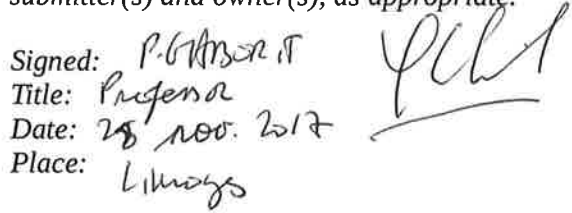 submitter(s) and owner(s), as appropriate.
Signed: P. GABORIT
Title: Professor
Date: 28 nov. 2017
Place: Limoges